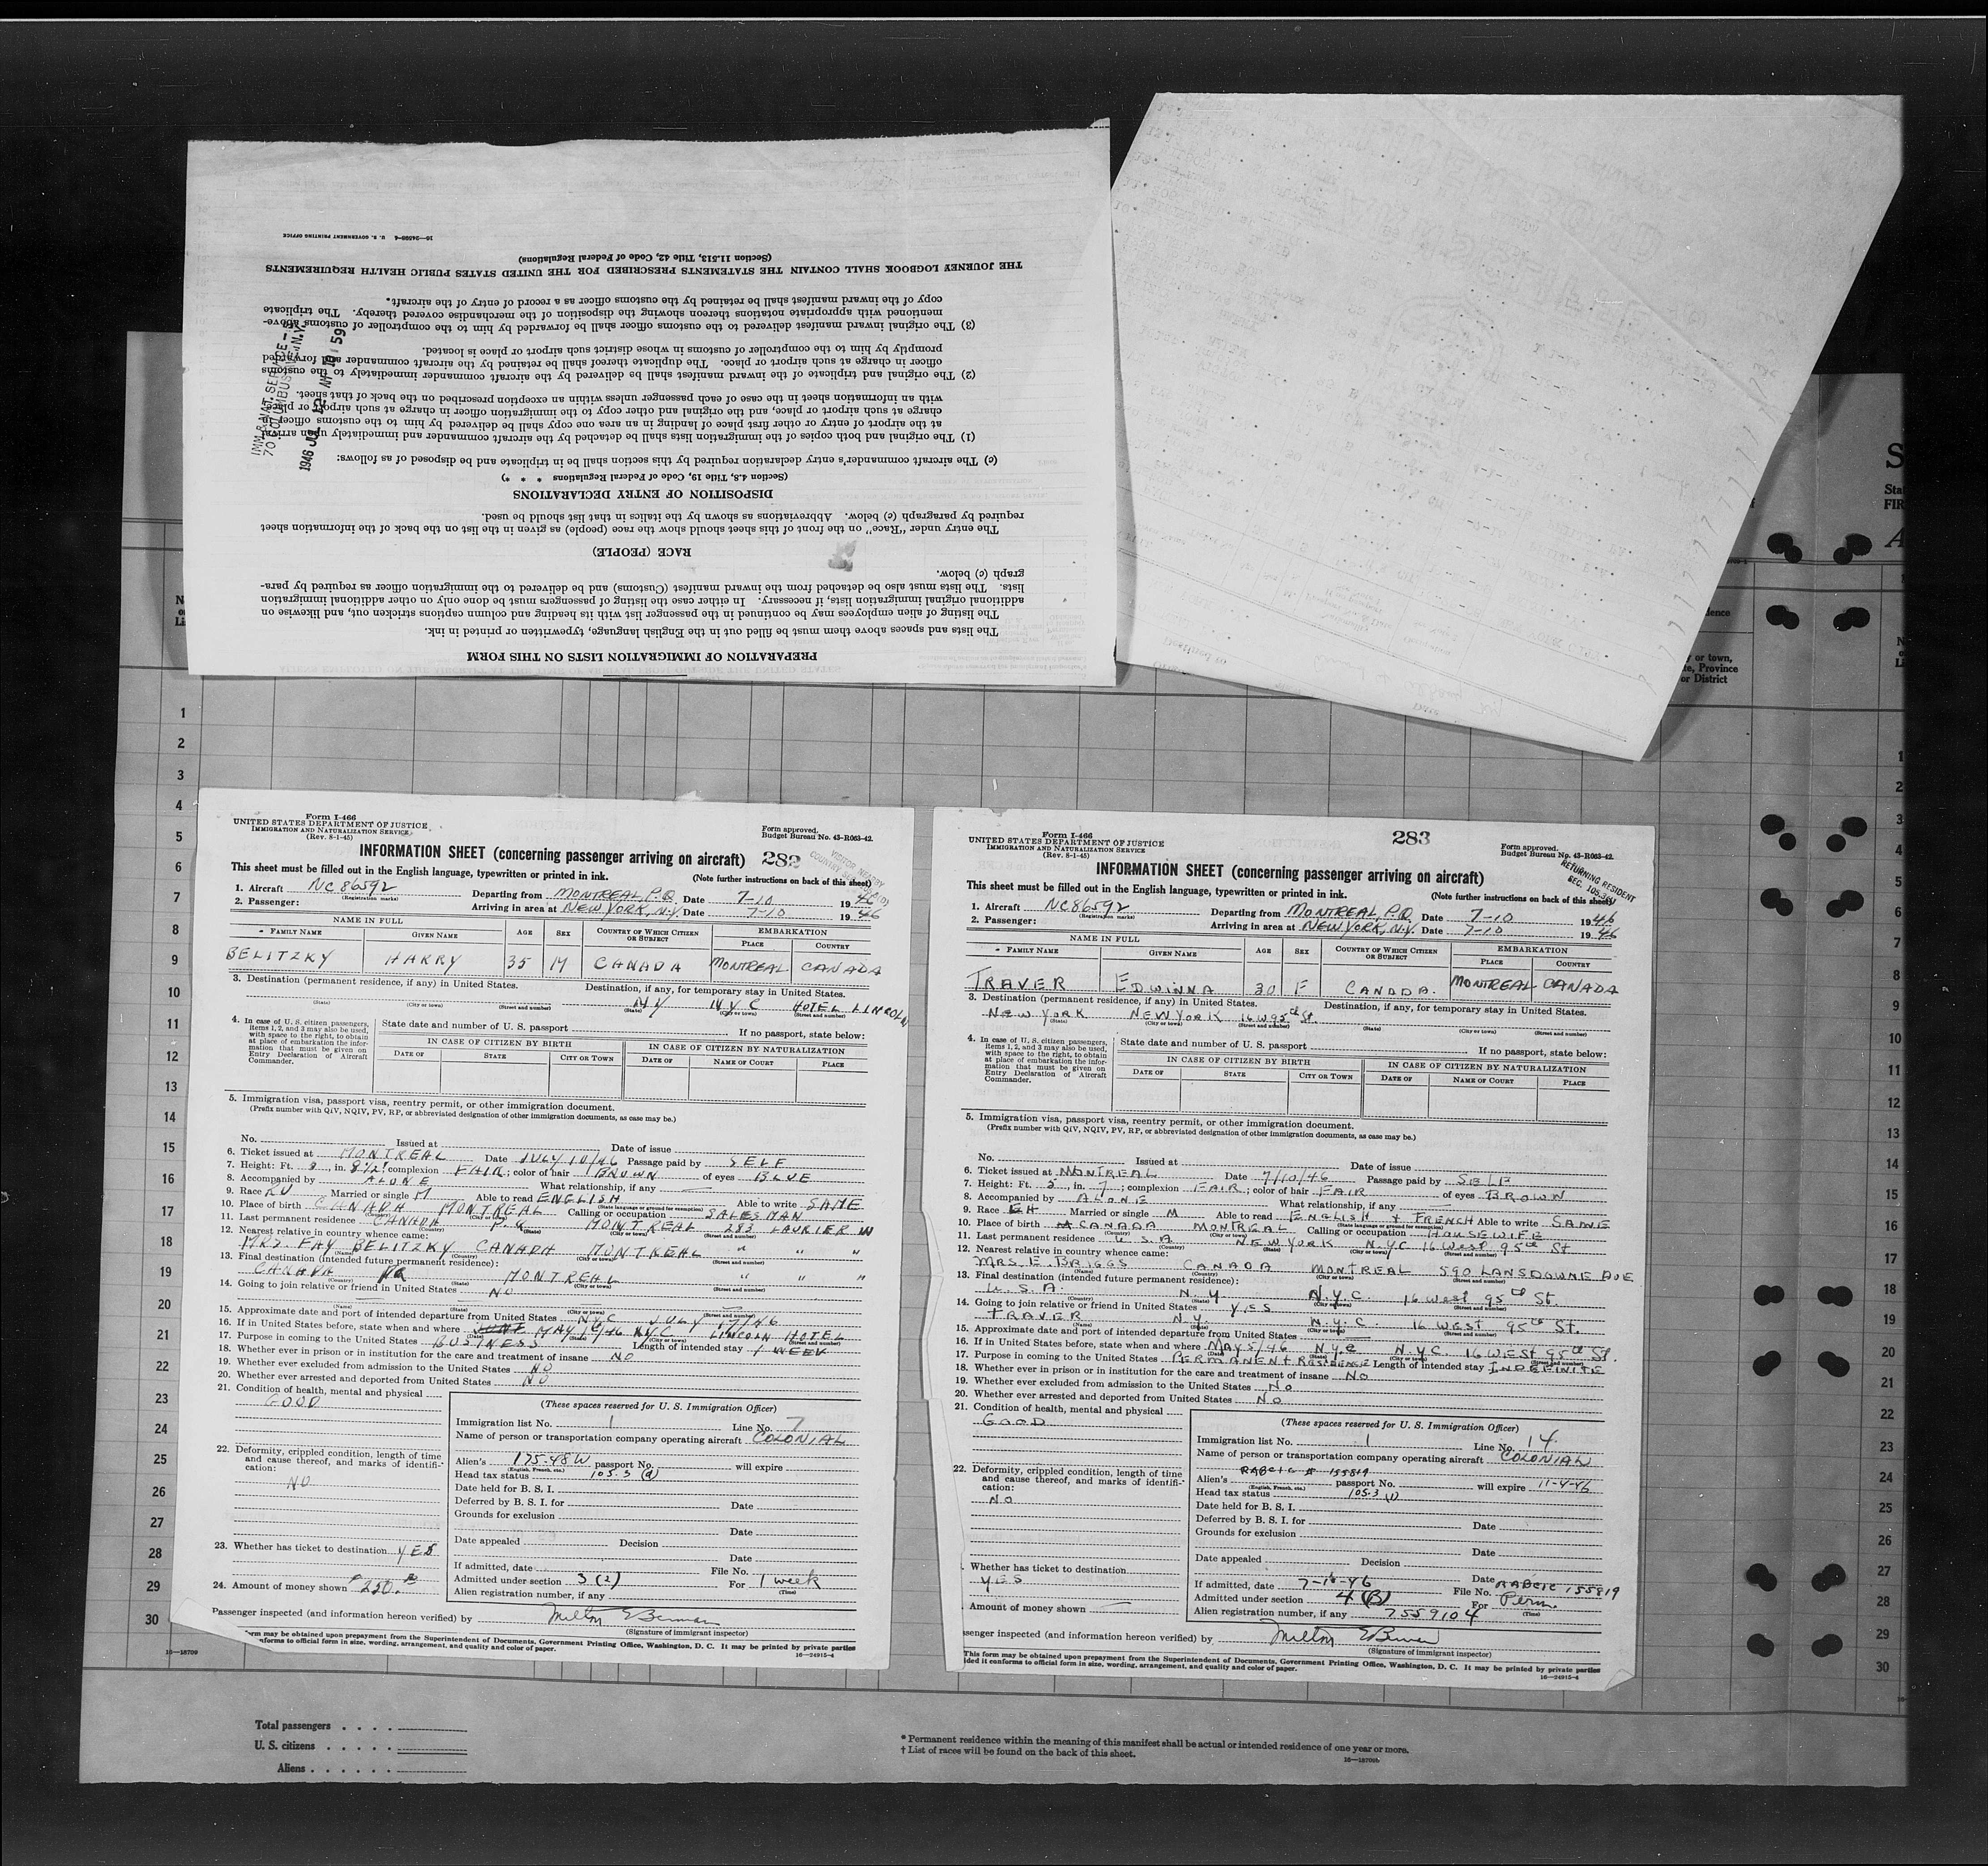 PREPARATION OF IMMIGRATION LISTS ON THIS FORM
The lists and spaces above them must be filled out in the English language, typewritten or printed in ink.
The listing of alien employees may be continued in the passenger list with its heading and column captions stricken out, and likewise on
additional original immigration lists, if necessary. In either case the listing of passengers must be done only on other additional immigration
lists. The lists must also be detached from the inward manifest (Customs) and be delivered to the immigration officer as required by para-
graph (c) below.
RACE (PEOPLE)
The entry under "Race" on the front of this sheet should show the race (people) as given in the list on the back of the information sheet
required by paragraph (c) below. Abbreviations as shown by the italics in that list should be used.
DISPOSITION OF ENTRY DECLARATIONS
(Section 4.8, Title 19, Code of Federal Regulations * * *)
(c) The aircraft commander's entry declaration required by this section shall be in triplicate and be disposed of as follows:
(1) The original and both copies of the immigration lists shall be detached by the aircraft commander and immediately upon arrival
at the airport of entry or other first place of landing in an area one copy shall be delivered by him to the customs officer in
charge at such airport or place, and the original and other copy to the immigration officer in charge at such airport or place,
with an information sheet in the case of each passenger unless within an exception prescribed on the back of that sheet.
(2) The original and triplicate of the inward manifest shall be delivered by the aircraft commander immediately to the customs
officer in charge at such airport or place. The duplicate thereof shall be retained by the aircraft commander and forwarded
promptly by him to the comptroller of customs in whose district such airport or place is located.
(3) The original inward manifest delivered to the customs officer shall be forwarded by him to the comptroller of customs above-
mentioned with appropriate notations thereon showing the disposition of the merchandise covered thereby. The triplicate
copy of the inward manifest shall be retained by the customs officer as a record of entry of the aircraft.
THE JOURNEY LOGBOOK SHALL CONTAIN THE STATEMENTS PRESCRIBED FOR THE UNITED STATES PUBLIC HEALTH REQUIREMENTS
(Section 11.513, Title 42, Code of Federal Regulations)
16—24598-4 U. S. GOVERNMENT PRINTING OFFICE
IMM. & NAT. SERVICE
70 COLUMBUS N.Y.
1946 JUL 12 AM 10 59
Form I-466
UNITED STATES DEPARTMENT OF JUSTICE
IMMIGRATION AND NATURALIZATION SERVICE
(Rev. 8-1-45)
Form approved.
Budget Bureau No. 43-R063-42.
INFORMATION SHEET (concerning passenger arriving on aircraft) 282
This sheet must be filled out in the English language, typewritten or printed in ink. (Note further instructions on back of this sheet)
1. Aircraft NC86592 (Registration marks) Departing from MONTREAL, P.Q. Date 7-10 1946
2. Passenger: Arriving in area at NEW YORK, N.Y. Date 7-10 1946
NAME IN FULL AGE SEX COUNTRY OF WHICH CITIZEN OR SUBJECT EMBARKATION
FAMILY NAME GIVEN NAME PLACE COUNTRY
BELITZKY HARRY 35 M CANADA MONTREAL CANADA
3. Destination (permanent residence, if any) in United States. Destination, if any, for temporary stay in United States.
NY NYC HOTEL LINCOLN
(State) (City or town) (Street and number) (State) (City or town) (Street and number)
4. In case of U. S. citizen passengers, items 1, 2, and 3 may also be used, with space to the right, to obtain at place of embarkation the information that must be given on Entry Declaration of Aircraft Commander.
State date and number of U. S. passport If no passport, state below:
IN CASE OF CITIZEN BY BIRTH IN CASE OF CITIZEN BY NATURALIZATION
DATE OF STATE CITY OR TOWN DATE OF NAME OF COURT PLACE
5. Immigration visa, passport visa, reentry permit, or other immigration document.
(Prefix number with QIV, NQIV, PV, RP, or abbreviated designation of other immigration documents, as case may be.)
No. Issued at Date of issue
6. Ticket issued at MONTREAL Date JULY 10/46 Passage paid by SELF
7. Height: Ft. in. 8½; complexion FAIR; color of hair BROWN of eyes BLUE
8. Accompanied by ALONE What relationship, if any
9. Race RU Married or single M Able to read ENGLISH Able to write SAME
10. Place of birth CANADA MONTREAL Calling or occupation SALESMAN
11. Last permanent residence CANADA P.Q. MONTREAL 283 LAURIER W
12. Nearest relative in country whence came:
MRS. FAY BELITZKY CANADA MONTREAL " " "
13. Final destination (intended future permanent residence):
CANADA PQ MONTREAL " " "
14. Going to join relative or friend in United States NO
15. Approximate date and port of intended departure from United States NYC JULY 17/46
16. If in United States before, state when and where MAY /46 NYC LINCOLN HOTEL
17. Purpose in coming to the United States BUSINESS Length of intended stay 1 WEEK
18. Whether ever in prison or in institution for the care and treatment of insane NO
19. Whether ever excluded from admission to the United States NO
20. Whether ever arrested and deported from United States NO
21. Condition of health, mental and physical
GOOD
22. Deformity, crippled condition, length of time and cause thereof, and marks of identification:
NO
23. Whether has ticket to destination YES
24. Amount of money shown 250.
(These spaces reserved for U. S. Immigration Officer)
Immigration list No. 1 Line No. 7
Name of person or transportation company operating aircraft COLONIAL
Alien's 175-48W passport No. will expire
(English, French, etc.)
Head tax status 105.3 (d)
Date held for B. S. I.
Deferred by B. S. I. for Date
Grounds for exclusion
Date
Date appealed Decision
Date
If admitted, date File No.
Admitted under section 3(2) For 1 week
(Time)
Alien registration number, if any
Passenger inspected (and information hereon verified) by Milton Berman
(Signature of immigrant inspector)
form may be obtained upon prepayment from the Superintendent of Documents, Government Printing Office, Washington, D. C. It may be printed by private parties
conforms to official form in size, wording, arrangement, and quality and color of paper.
16—18709 16—24915-4
Form I-466
UNITED STATES DEPARTMENT OF JUSTICE
IMMIGRATION AND NATURALIZATION SERVICE
(Rev. 8-1-45)
283
Form approved.
Budget Bureau No. 43-R063-42.
RETURNING RESIDENT
SEC. 105.3
INFORMATION SHEET (concerning passenger arriving on aircraft)
This sheet must be filled out in the English language, typewritten or printed in ink. (Note further instructions on back of this sheet)
1. Aircraft NC86592 (Registration marks) Departing from MONTREAL, P.Q. Date 7-10 1946
2. Passenger: Arriving in area at NEW YORK, N.Y. Date 7-10 1946
NAME IN FULL AGE SEX COUNTRY OF WHICH CITIZEN OR SUBJECT EMBARKATION
FAMILY NAME GIVEN NAME PLACE COUNTRY
TRAVER EDWINNA 30 F CANADA. MONTREAL CANADA
3. Destination (permanent residence, if any) in United States. Destination, if any, for temporary stay in United States.
NEW YORK NEW YORK 16 W 95th St.
(State) (City or town) (Street and number) (State) (City or town) (Street and number)
4. In case of U. S. citizen passengers, items 1, 2, and 3 may also be used, with space to the right, to obtain at place of embarkation the information that must be given on Entry Declaration of Aircraft Commander.
State date and number of U. S. passport If no passport, state below:
IN CASE OF CITIZEN BY BIRTH IN CASE OF CITIZEN BY NATURALIZATION
DATE OF STATE CITY OR TOWN DATE OF NAME OF COURT PLACE
5. Immigration visa, passport visa, reentry permit, or other immigration document.
(Prefix number with QIV, NQIV, PV, RP, or abbreviated designation of other immigration documents, as case may be.)
No. Issued at Date of issue
6. Ticket issued at MONTREAL Date 7/10/46 Passage paid by SELF
7. Height: Ft. 5, in. 7; complexion FAIR; color of hair FAIR of eyes BROWN
8. Accompanied by ALONE What relationship, if any
9. Race EH Married or single M Able to read ENGLISH & FRENCH Able to write SAME
10. Place of birth CANADA MONTREAL Calling or occupation HOUSEWIFE
11. Last permanent residence U.S.A NEW YORK N.Y.C 16 West 95th St
12. Nearest relative in country whence came:
MRS. E. BRIGGS CANADA MONTREAL 590 LANSDOWNE AVE
13. Final destination (intended future permanent residence):
U.S.A. N.Y N.Y.C. 16 West 95th St.
14. Going to join relative or friend in United States YES
TRAVER N.Y. N.Y.C. 16 WEST 95th St.
15. Approximate date and port of intended departure from United States
16. If in United States before, state when and where MAY 5/46 N.Y.C N.Y.C. 16 WEST 95th St.
17. Purpose in coming to the United States PERMANENT RESIDENCE Length of intended stay INDEFINITE
18. Whether ever in prison or in institution for the care and treatment of insane NO
19. Whether ever excluded from admission to the United States NO
20. Whether ever arrested and deported from United States NO
21. Condition of health, mental and physical
GOOD
22. Deformity, crippled condition, length of time and cause thereof, and marks of identification:
NO
Whether has ticket to destination
YES
Amount of money shown
(These spaces reserved for U. S. Immigration Officer)
Immigration list No. 1 Line No. 14
Name of person or transportation company operating aircraft COLONIAL
RABCIC # 155819
Alien's passport No. will expire 11-4-46
(English, French, etc.)
Head tax status 105.3 (1)
Date held for B. S. I.
Deferred by B. S. I. for Date
Grounds for exclusion
Date
Date appealed Decision
Date
If admitted, date 7-10-46 File No. RABCIC 155819
Admitted under section 4(B) For Perm.
(Time)
Alien registration number, if any 7559104
senger inspected (and information hereon verified) by Milton Berman
(Signature of immigrant inspector)
This form may be obtained upon prepayment from the Superintendent of Documents, Government Printing Office, Washington, D. C. It may be printed by private parties
ded it conforms to official form in size, wording, arrangement, and quality and color of paper.
16—24915-4
Total passengers
U. S. citizens
Aliens
* Permanent residence within the meaning of this manifest shall be actual or intended residence of one year or more.
† List of races will be found on the back of this sheet.
16—18709b